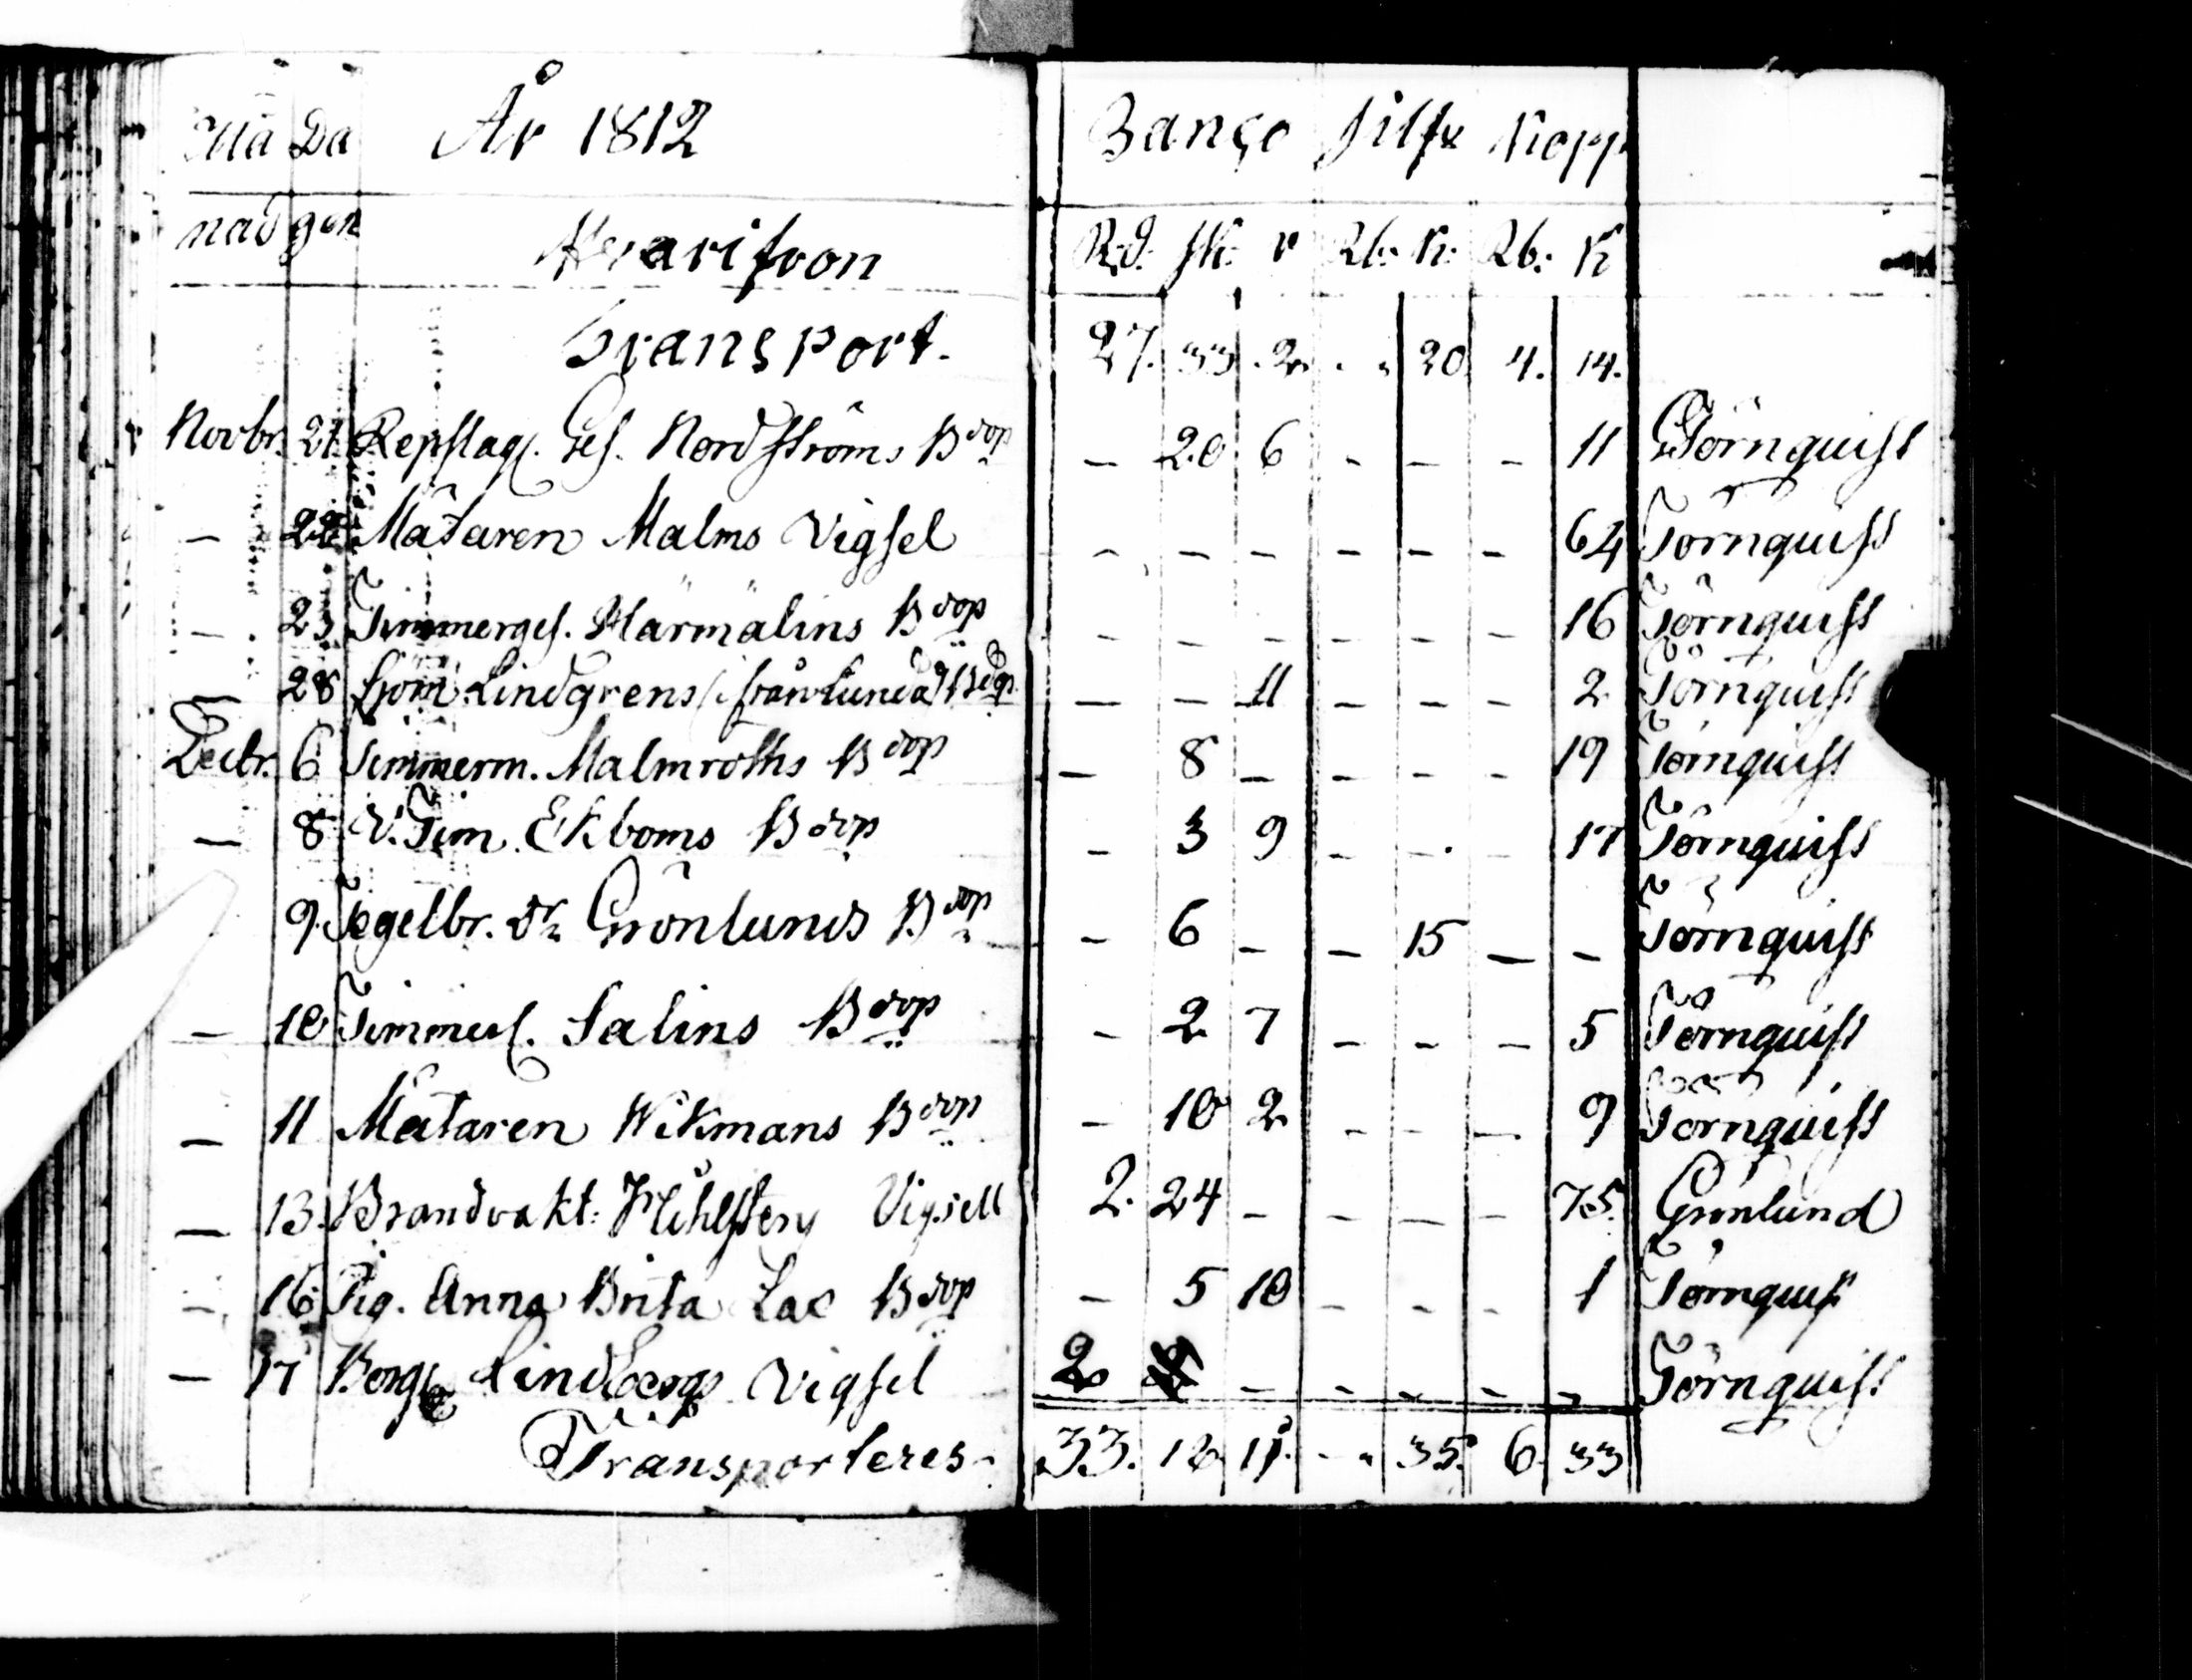 Må Da År 1812 Banço Silfv Kopp
nad gen Hvarifron Rd. sk: r Rb: K: Rb: K
Transport. 27. 33. 2. - - 20 4. 14.
Novbr. 21 Repslag. Ges. Nordströms B dop - 20 6 - - - 11 Törnquist
- 22 Mätaren Malms Vigsel - - - - - - 64 Törnquist
- 23 Timmerges. Härmälins B dop - - - - - - 16 Törnquist
28 Lindgrens B dop - - 11 - - - 2 Törnquist
Decbr. 6 Timmerm. Malmroths B dop - 8 - - - - 19 Törnquist
- 8 V. Tim. Ekboms B dop - 3 9 - - - 17 Törnquist
9 Tegelbr. Dr. Grönlunds B dop - 6 - - 15 - - Törnquist
- 10 Salins B dop - 2 7 - - - 5 Törnquist
- 11 Mätaren Wikmans B dop - 10 2 - - - 9 Törnquist
- 13 Brandvakt: Vigsell 2. 24 - - - - 75. Grönlund
- 16 Pig. Anna Brita B dop - 5 10 - - - 1 Törnquist
- 17 Lindbergs Vigsel 2 - - - - - Törnquist
Transporteres. 33. 18 11. - - 35. 6. 33